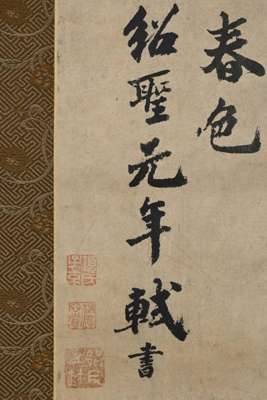 春色
紹聖元年軾書